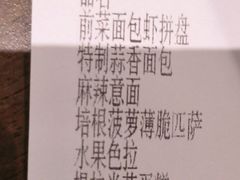 品名
前菜面包虾拼盘
特制蒜香面包
麻辣意面
培根菠萝薄脆匹萨
水果色拉